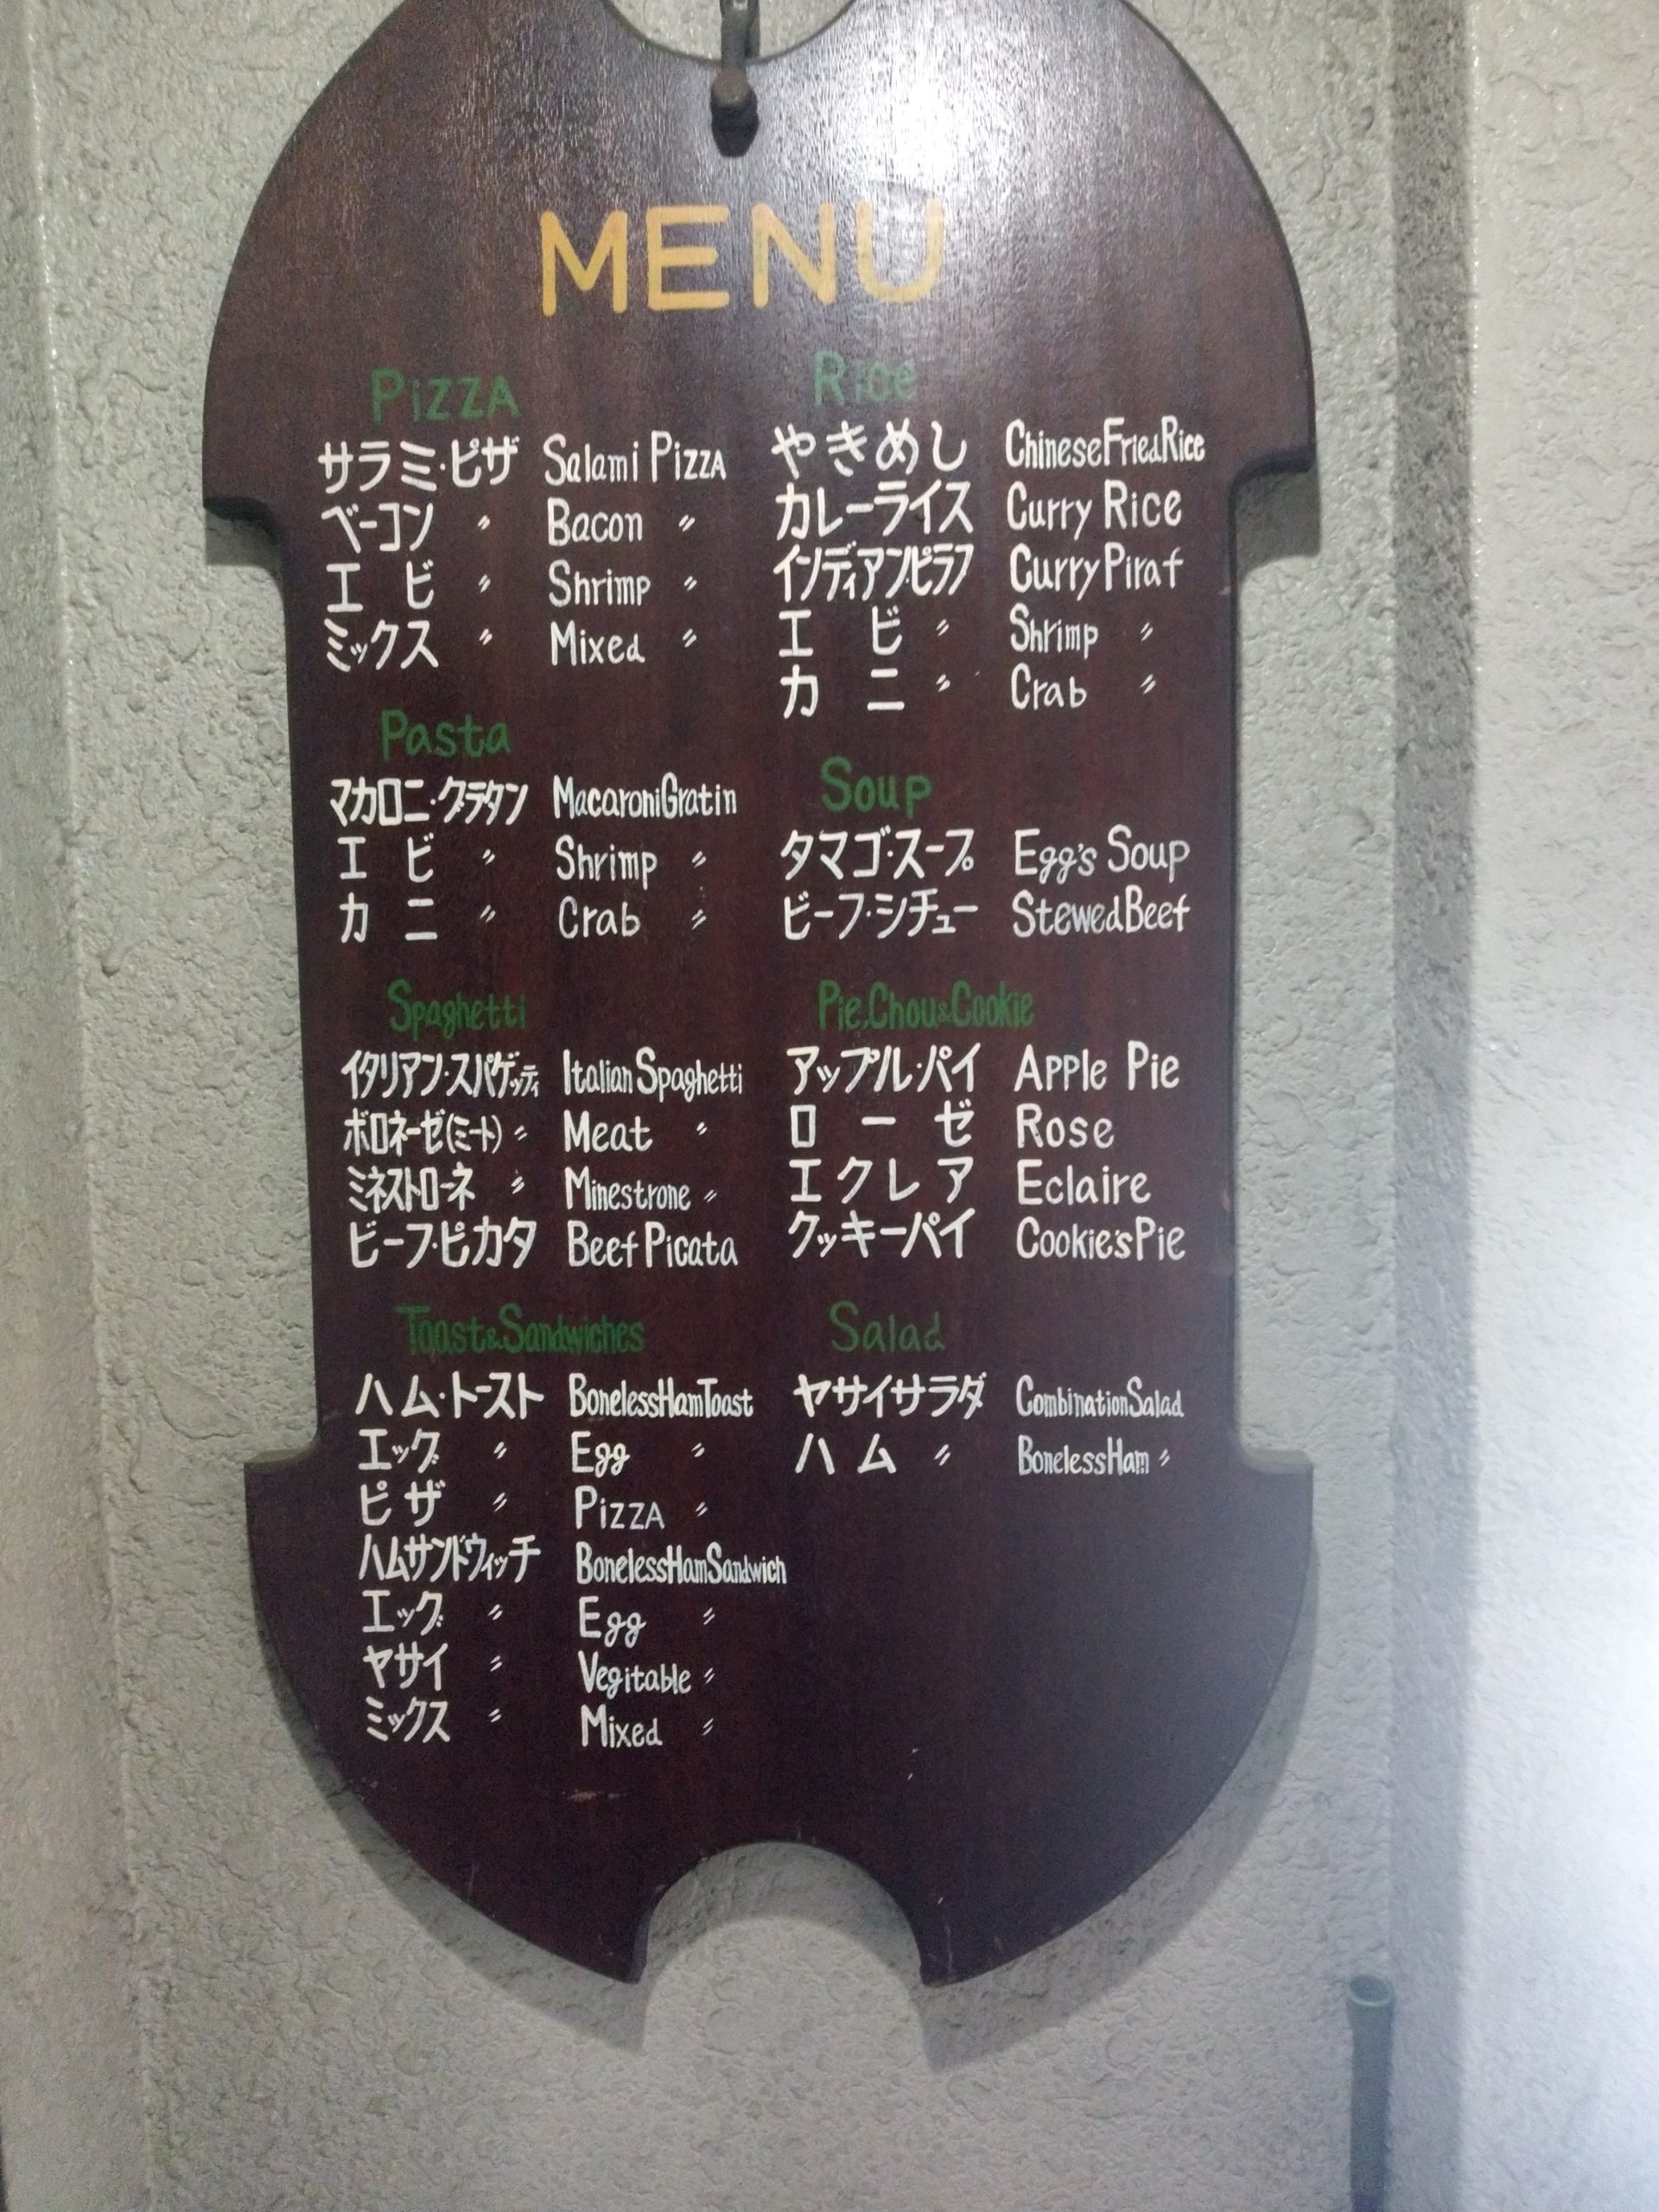 MENU
PizzA
サラミ・ピザ Salami PizzA
ベーコン 〃 Bacon 〃
エビ 〃 Shrimp 〃
ミックス 〃 Mixed 〃
Pasta
マカロニ・グラタン Macaroni Gratin
エビ 〃 Shrimp 〃
カニ 〃 Crab 〃
Spaghetti
イタリアン・スパゲッティ Italian Spaghetti
ボロネーゼ(ミート) 〃 Meat 〃
ミネストローネ 〃 Minestrone 〃
ビーフ・ピカタ Beef Picata
Toast & Sandwiches
ハム・トースト Boneless Ham Toast
エッグ 〃 Egg 〃
ピザ 〃 PizzA 〃
ハムサンドウィッチ Boneless Ham Sandwich
エッグ 〃 Egg 〃
ヤサイ 〃 Vegitable 〃
ミックス 〃 Mixed 〃
Rice
やきめし Chinese Fried Rice
カレーライス Curry Rice
インディアンピラフ Curry Piraf
エビ 〃 Shrimp 〃
カニ 〃 Crab 〃
Soup
タマゴ・スープ Egg's Soup
ビーフ・シチュー Stewed Beef
Pie, Chou & Cookie
アップル・パイ Apple Pie
ローゼ Rose
エクレア Eclaire
クッキーパイ Cookie's Pie
Salad
ヤサイサラダ Combination Salad
ハム 〃 Boneless Ham 〃